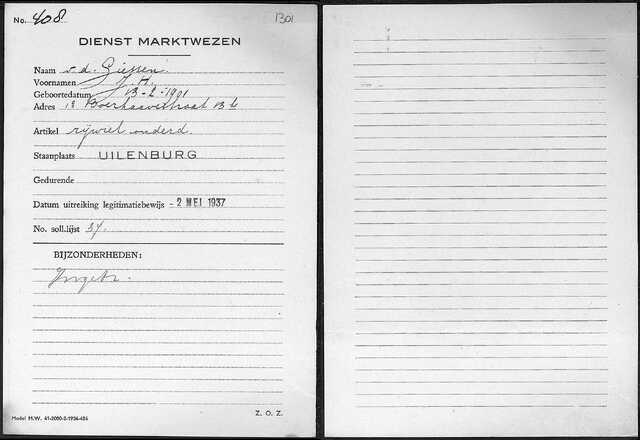 No. 408 1301
DIENST MARKTWEZEN
Naam v. d. Giessen
Voornamen J. H.
Geboortedatum 13-2-1901
Adres 13 Boerhaavestraat 13 b
Artikel rijwiel onderd.
Staanplaats UILENBURG
Gedurende
Datum uitreiking legitimatiebewijs - 2 MEI 1937
No. soll.lijst 34.
BIJZONDERHEDEN:
Ingetr.
Model M.W. 41-2000-2-1936-426
Z. O. Z.